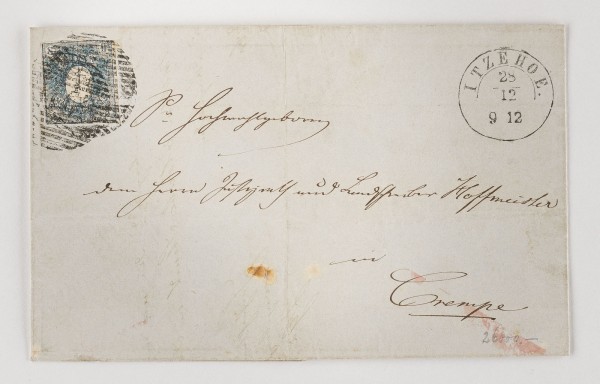 ITZEHOE.
28
12
9 12
Sr Hochwohlgeboren
dem Herrn Justizrath und Landschreiber Hoffmeister
in
Crempe